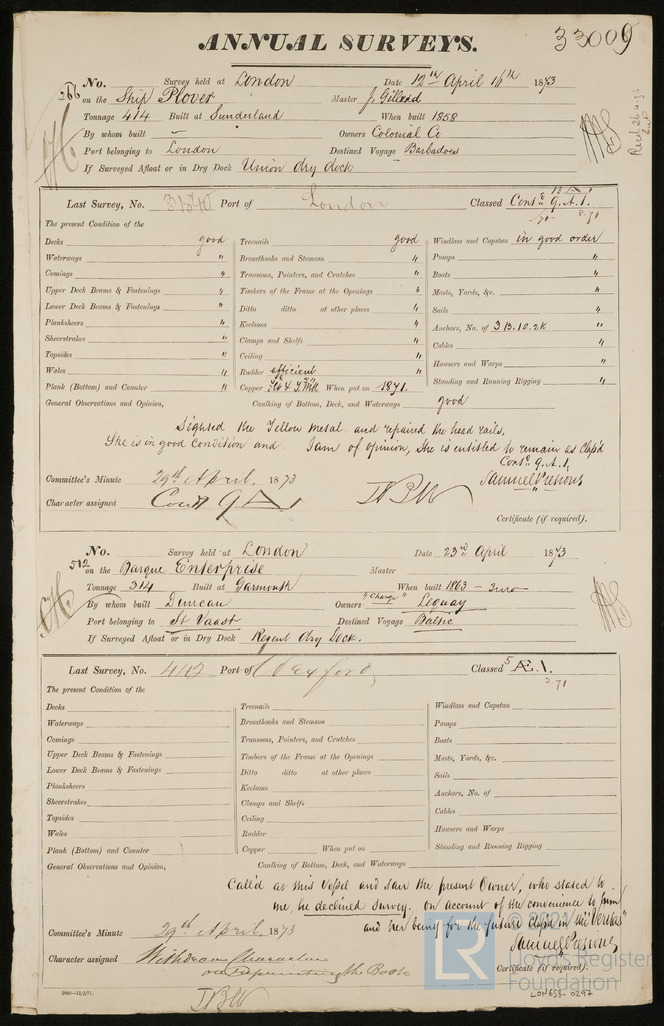 ANNUAL SURVEYS.
33009
266
No. Survey held at London Date 12th April 16th 1873
on the Ship Plover Master J. Gilladd
Tonnage 414 Built at Sunderland When built 1858
By whom built — Owners Colonial Co
Port belonging to London Destined Voyage Barbadoes
If Surveyed Afloat or in Dry Dock Union dry dock
Last Survey, No. 31840 Port of London Classed Contd 9. A.1.
8.71
The present Condition of the
Decks good Treenails good Windlass and Capstan in good order
Waterways " Breasthooks and Stemson " Pumps "
Comings " Transoms, Pointers, and Crutches " Boats "
Upper Deck Beams & Fastenings " Timbers of the Frame at the Openings " Masts, Yards, &c. "
Lower Deck Beams & Fastenings " Ditto ditto at other places " Sails "
Planksheers " Keelsons " Anchors, No. of 3 B. 1 S. 2 K "
Sheerstrakes " Clamps and Shelfs " Cables "
Topsides " Ceiling " Hawsers and Warps "
Wales " Rudder efficient Standing and Running Rigging "
Plank (Bottom) and Counter " Copper When put on 1871.
General Observations and Opinion, Caulking of Bottom, Deck, and Waterways good
Sighted the Yellow Metal and repaired the head rails,
She is in good condition and I am of opinion, She is entitled to remain as Class'd
Contd 9. A.1.
Committee's Minute 29th April, 1873
Character assigned Contd 9 A 1
Certificate (if required).
512
No. Survey held at London Date 23rd April 1873
on the Barque Enterprise Master
Tonnage 314 Built at Garmouth When built 1863 –
By whom built Duncan Owners "Change" Lequay
Port belonging to St Vaast Destined Voyage Baltic
If Surveyed Afloat or in Dry Dock Regent dry Dock.
Last Survey, No. 412 Port of Classed 5 Æ 1.
2.71
The present Condition of the
Decks Treenails Windlass and Capstan
Waterways Breasthooks and Stemson Pumps
Comings Transoms, Pointers, and Crutches Boats
Upper Deck Beams & Fastenings Timbers of the Frame at the Openings Masts, Yards, &c.
Lower Deck Beams & Fastenings Ditto ditto at other places Sails
Planksheers Keelsons Anchors, No. of
Sheerstrakes Clamps and Shelfs Cables
Topsides Ceiling Hawsers and Warps
Wales Rudder Standing and Running Rigging
Plank (Bottom) and Counter Copper When put on
General Observations and Opinion, Caulking of Bottom, Deck, and Waterways
Call'd at this Vessel and saw the present Owner, who stated to
me, he declined survey, on account of the convenience to him
and her being for the future Class'd in the "Veritas"
Committee's Minute 29th April, 1873
Character assigned Withdraw Character
the Book
Certificate (if required).
2000—13/2/71.
LR
© 2021
Lloyd's Register
Foundation
LON658-0297